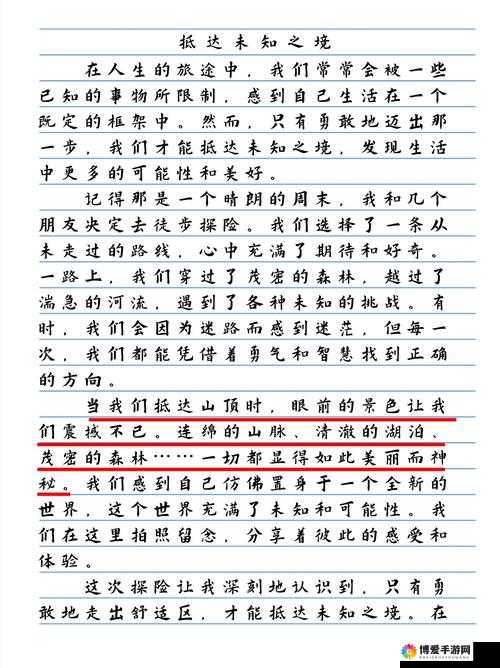 抵达未知之境
在人生的旅途中，我们常常会被一些
已知的事物所限制，感到自己生活在一个
既定的框架中。然而，只有勇敢地迈出那
一步，我们才能抵达未知之境，发现生活
中更多的可能性和美好。
记得那是一个晴朗的周末，我和几个
朋友决定去徒步探险。我们选择了一条从
未走过的路线，心中充满了期待和好奇。
一路上，我们穿过了茂密的森林，越过了
湍急的河流，遇到了各种未知的挑战。有
时，我们会因为迷路而感到迷茫，但每一
次，我们都能凭借着勇气和智慧找到正确
的方向。
当我们抵达山顶时，眼前的景色让我
们震撼不已。连绵的山脉、清澈的湖泊、
茂密的森林……一切都显得如此美丽而神
秘。我们感到自己仿佛置身于一个全新的
世界，这个世界充满了未知和可能性。我
们在这里拍照留念，分享着彼此的感受和
体验。
这次探险让我深刻地认识到，只有勇
敢地走出舒适区，才能抵达未知之境。在
博爱手游网